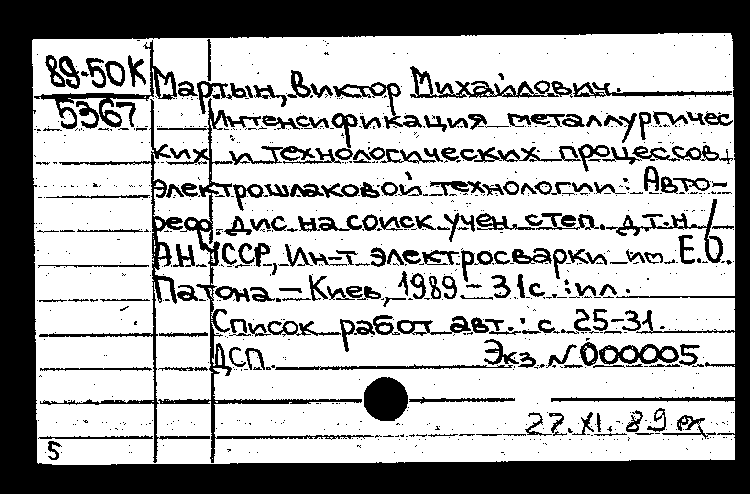 89-50К
5367
Мартын, Виктор Михайлович.
Интенсификация металлургичес
ких и технологических процессов
электрошлаковой технологии: Авто-
реф. дис. на соиск. учен. степ. д.т.н. /
АН УССР, Ин-т электросварки им. Е.О.
Патона. – Киев, 1989. – 31с. : ил.
Список работ авт.: с. 25-31.
ДСП. Экз. № 000005.
27.XI.89
5